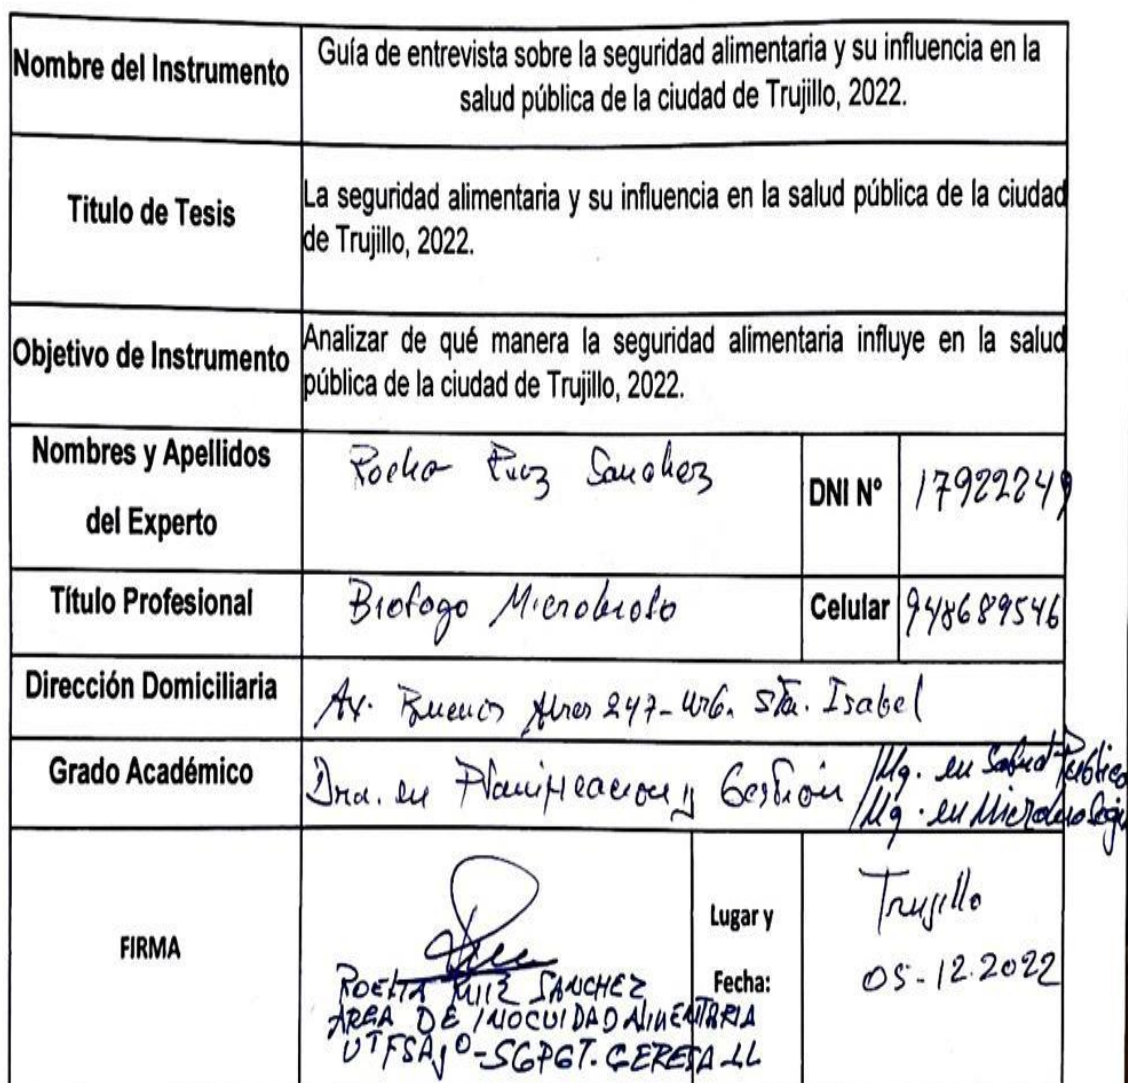 Nombre del Instrumento
Guía de entrevista sobre la seguridad alimentaria y su influencia en la
salud pública de la ciudad de Trujillo, 2022.
Titulo de Tesis
La seguridad alimentaria y su influencia en la salud pública de la ciudad
de Trujillo, 2022.
Objetivo de Instrumento
Analizar de qué manera la seguridad alimentaria influye en la salud
pública de la ciudad de Trujillo, 2022.
Nombres y Apellidos
del Experto
Ruiz Sanchez
DNI Nº
17922249
Título Profesional
Biologo
Celular
948689546
Dirección Domiciliaria
Av. Buenos Aires 247 - Urb. Sta. Isabel
Grado Académico
Dra. en Planificacion y Gestión / Mg. en Salud Publica
/ Mg. en Microbiologia
FIRMA
RUIZ SANCHEZ
AREA DE INOCUIDAD ALIMENTARIA
SGPGT. GERESA LL
Lugar y
Fecha:
Trujillo
05-12.2022